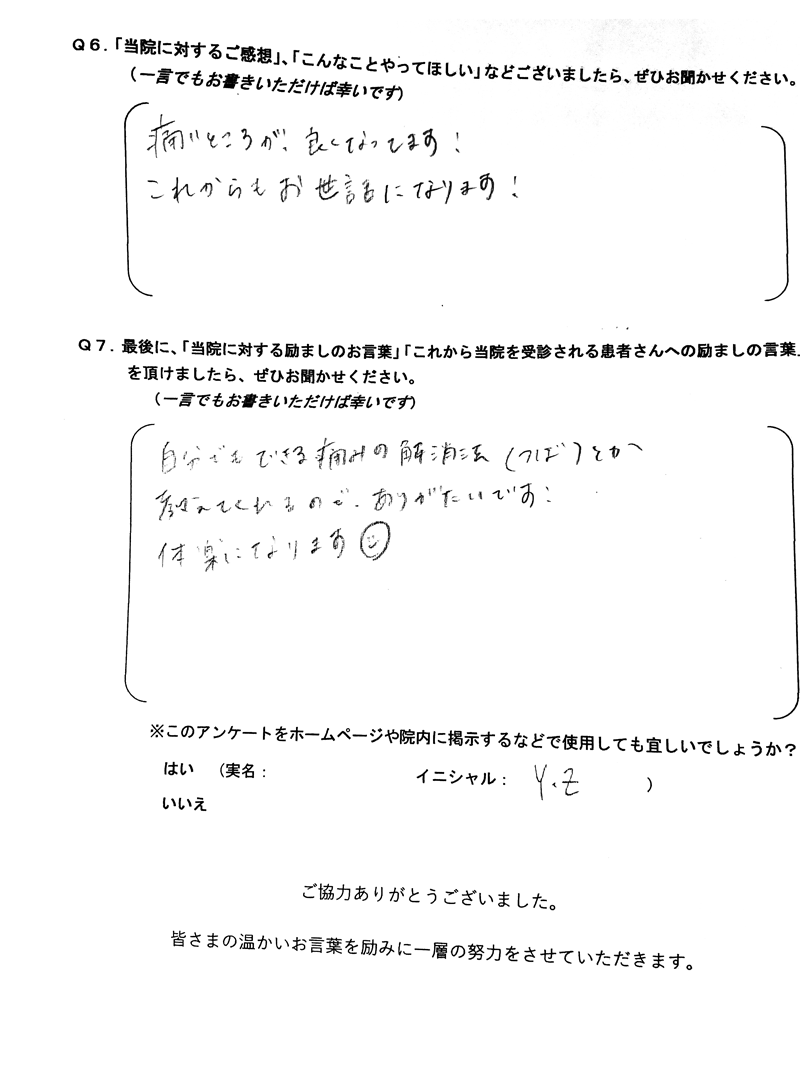 Ｑ６．「当院に対するご感想」、「こんなことやってほしい」などございましたら、ぜひお聞かせください。
（一言でもお書きいただけば幸いです）
痛いところが、良くなってます！
これからもお世話になります！
Ｑ７．最後に、「当院に対する励ましのお言葉」「これから当院を受診される患者さんへの励ましの言葉」
を頂けましたら、ぜひお聞かせください。
（一言でもお書きいただけば幸いです）
自分でもできる痛みの解消法（つぼ）とか
教えてくれるので、ありがたいです！
体楽になります
※このアンケートをホームページや院内に掲示するなどで使用しても宜しいでしょうか？
はい （実名： イニシャル： Y.Z ）
いいえ
ご協力ありがとうございました。
皆さまの温かいお言葉を励みに一層の努力をさせていただきます。